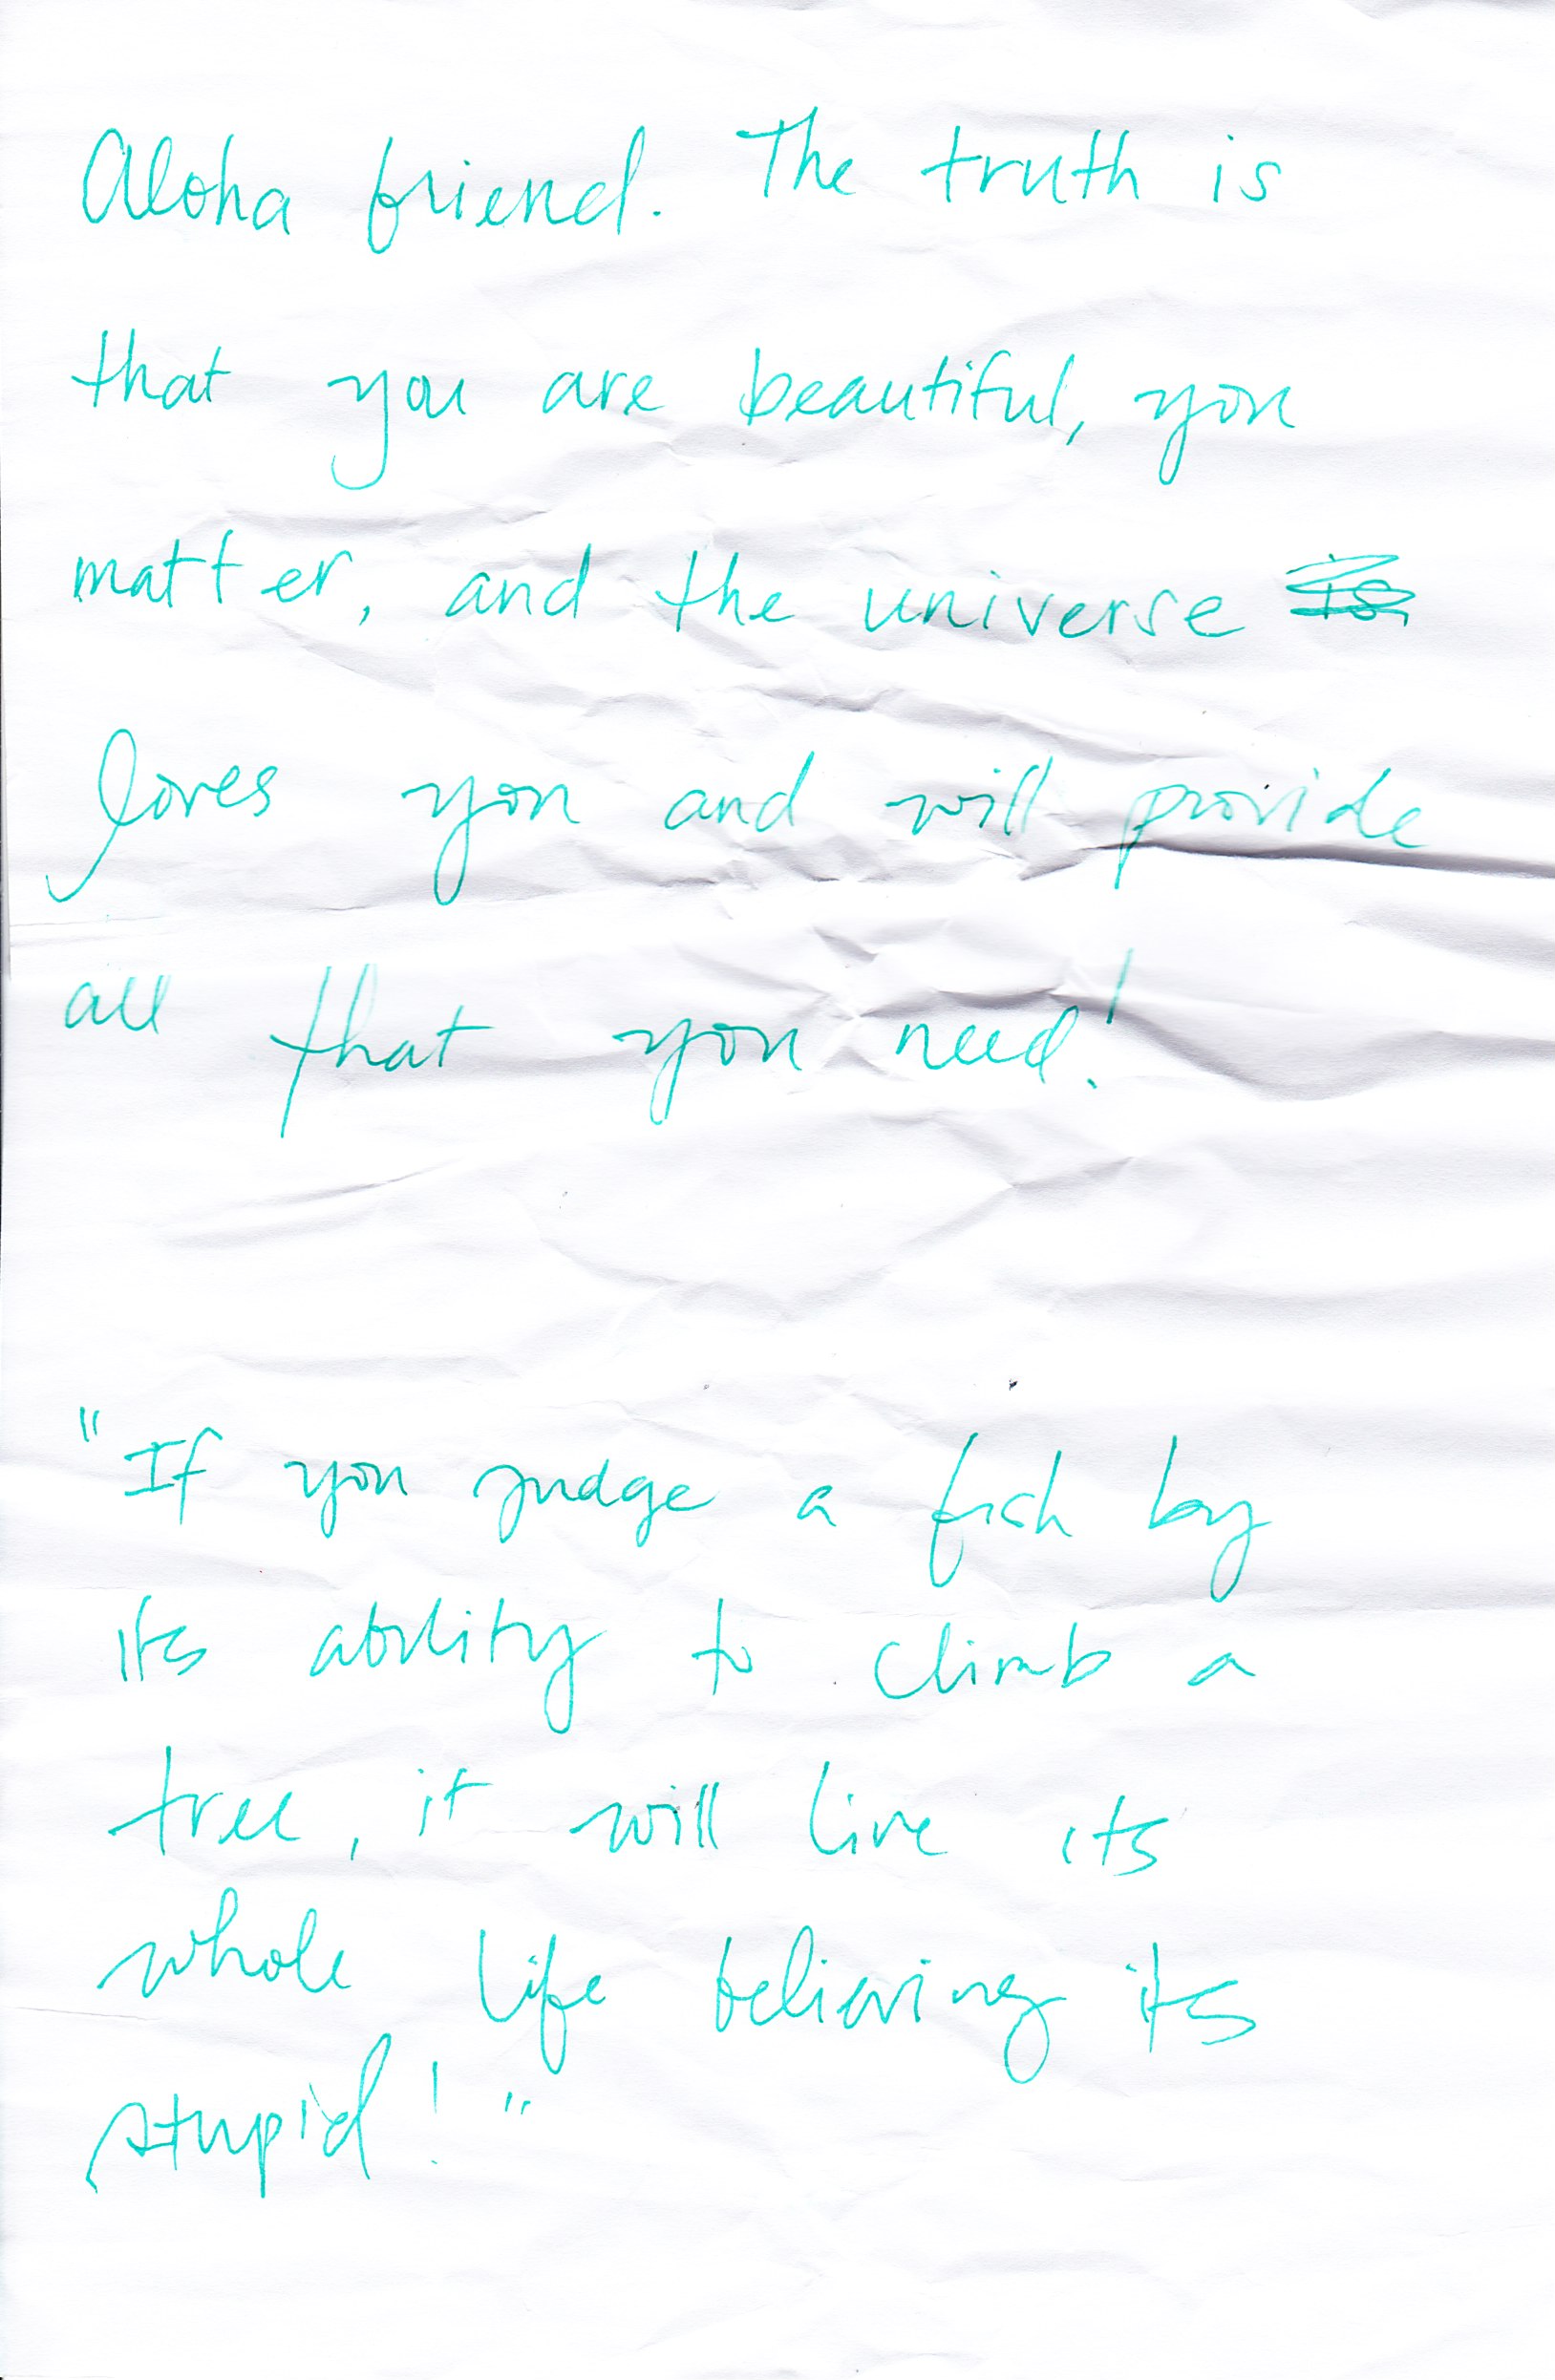 Aloha friend. The truth is
that you are beautiful, you
matter, and the universe
loves you and will provide
all that you need!
"If you judge a fish by
its ability to climb a
tree, it will live its
whole life believing its
stupid!"